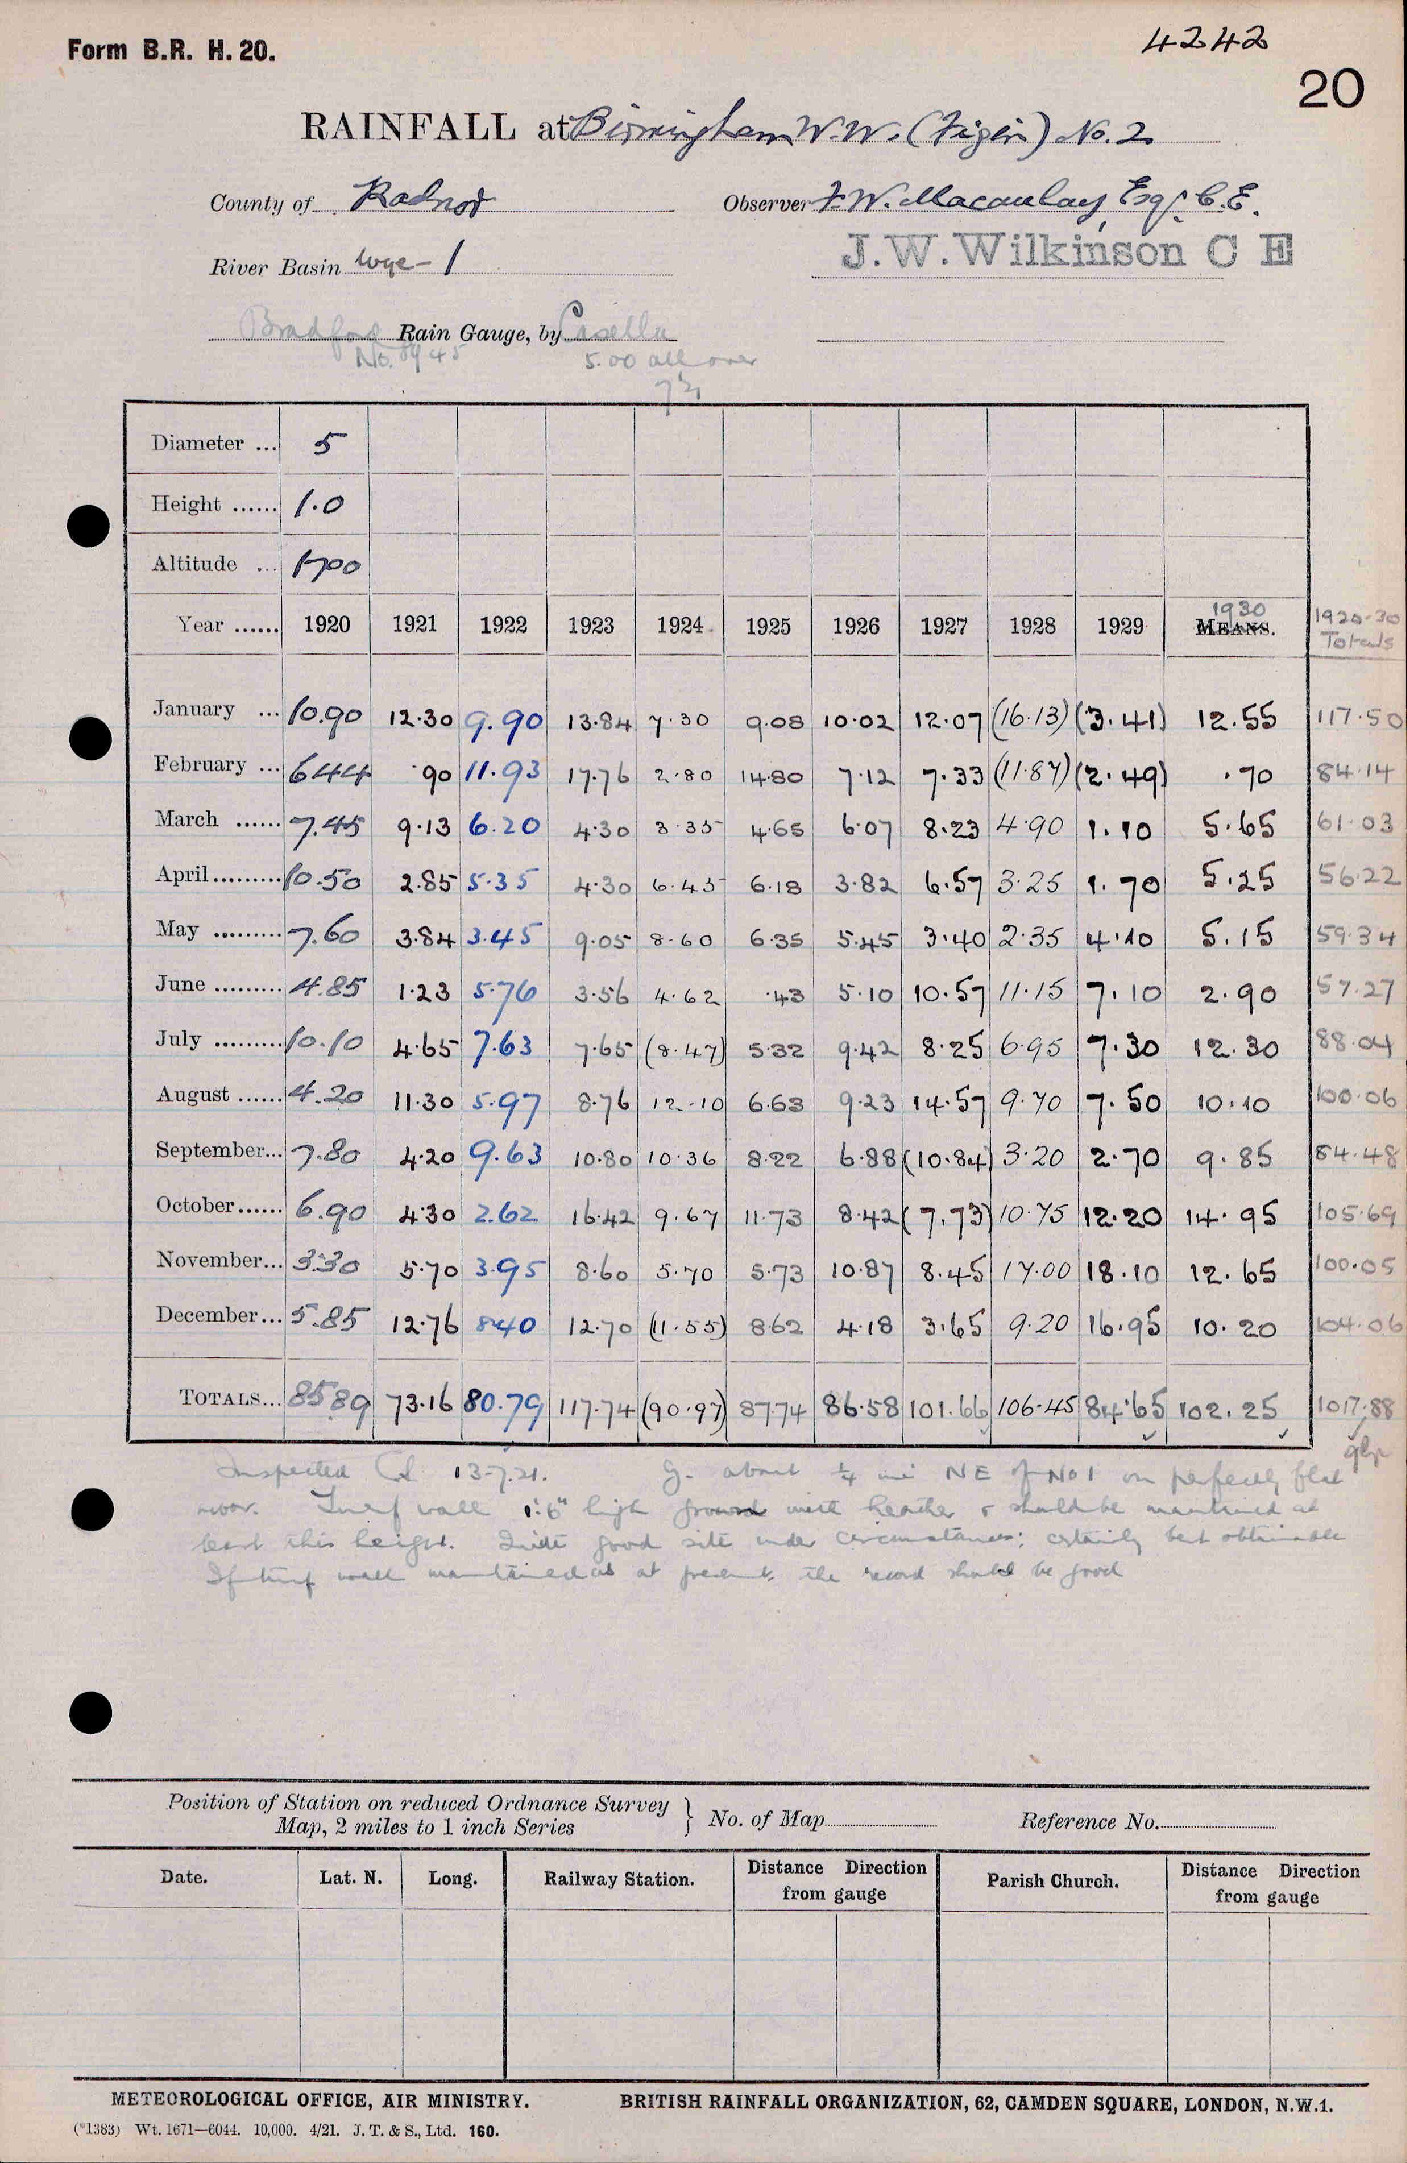 Form B.R. H. 20.
4242
20
RAINFALL at Birmingham W.W. (Figin) No. 2
County of Radnor Observer F. W. Macaulay, Esq. C.E.
River Basin Wye - 1 J.W. Wilkinson C E
Bradford Rain Gauge, by Casella
No. 8945 5.00 all over
Diameter ... 5
Height ...... 1.0
Altitude ... 1700
Year ...... 1920 1921 1922 1923 1924 1925 1926 1927 1928 1929 1930 MEANS. 1920-30 Totals
January ... 10.90 12.30 9.90 13.84 7.30 9.08 10.02 12.07 (16.13) (3.41) 12.55 117.50
February ... 6.44 .90 11.93 17.76 2.80 14.80 7.12 7.33 (11.87) (2.49) .70 84.14
March ...... 7.45 9.13 6.20 4.30 3.35 4.65 6.07 8.23 4.90 1.10 5.65 61.03
April ......... 10.50 2.85 5.35 4.30 6.45 6.18 3.82 6.57 3.25 1.70 5.25 56.22
May ......... 7.60 3.84 3.45 9.05 8.60 6.35 5.45 3.40 2.35 4.10 5.15 59.34
June ......... 4.85 1.23 5.76 3.56 4.62 .43 5.10 10.57 11.15 7.10 2.90 57.27
July ......... 10.10 4.65 7.63 7.65 (8.47) 5.32 9.42 8.25 6.95 7.30 12.30 88.04
August ...... 4.20 11.30 5.97 8.76 12.10 6.63 9.23 14.57 9.70 7.50 10.10 100.06
September... 7.80 4.20 9.63 10.80 10.36 8.22 6.88 (10.84) 3.20 2.70 9.85 84.48
October...... 6.90 4.30 2.62 16.42 9.67 11.73 8.42 (7.73) 10.75 12.20 14.95 105.69
November... 3.30 5.70 3.95 8.60 5.70 5.73 10.87 8.45 17.00 18.10 12.65 100.05
December... 5.85 12.76 8.40 12.70 (11.55) 8.62 4.18 3.65 9.20 16.95 10.20 104.06
TOTALS... 85.89 73.16 80.79 117.74 (90.97) 87.74 86.58 101.66 106.45 84.65 102.25 1017.88
Inspected 13.7.21. G. about 1/4 mi NE of No 1 on perfectly flat
moor. Turf wall 1'.6" high ground with heather & should be maintained at
least this height. Quite good site under circumstances; certainly best obtainable
If turf wall maintained as at present, the record should be good
Position of Station on reduced Ordnance Survey
Map, 2 miles to 1 inch Series } No. of Map Reference No.
Date. Lat. N. Long. Railway Station. Distance Direction from gauge Parish Church. Distance Direction from gauge
METEOROLOGICAL OFFICE, AIR MINISTRY. BRITISH RAINFALL ORGANIZATION, 62, CAMDEN SQUARE, LONDON, N.W.1.
(*1383) Wt. 1671—6044. 10,000. 4/21. J. T. & S., Ltd. 160.